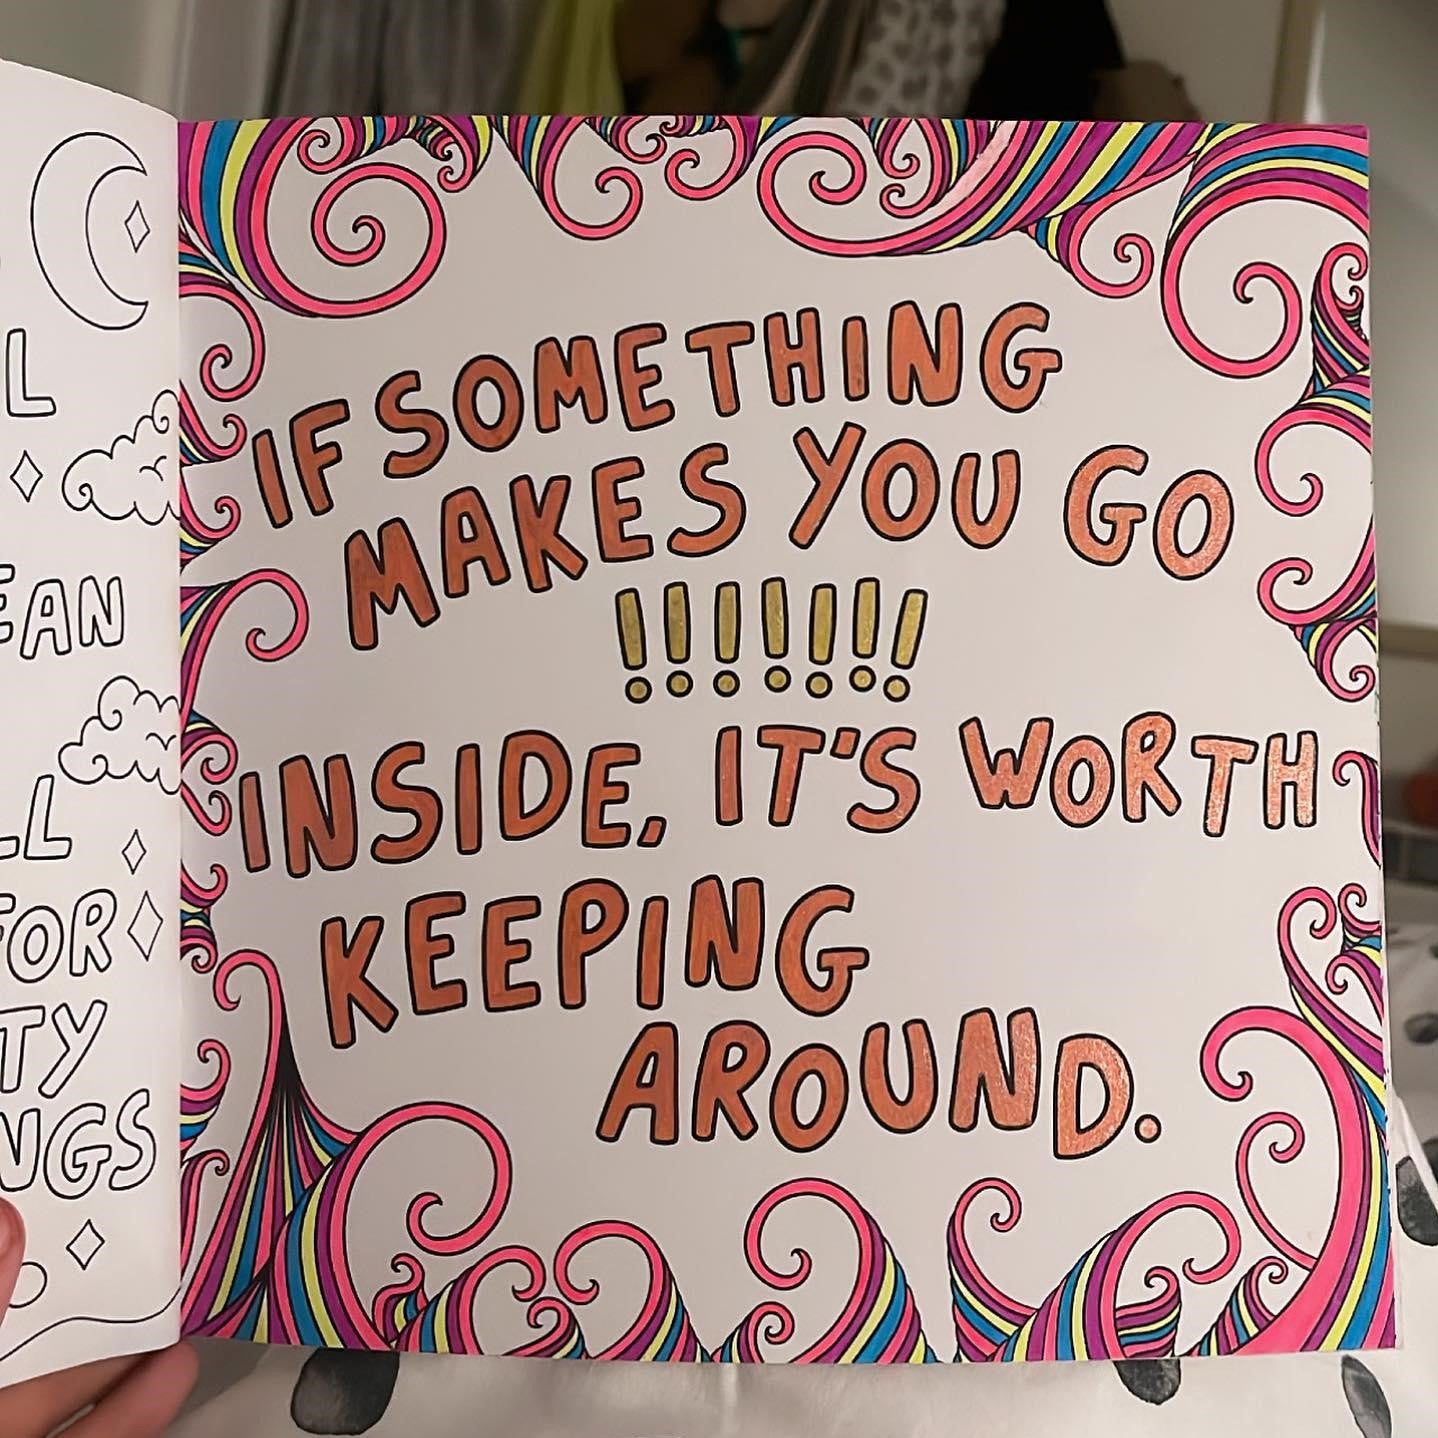 L
EAN
LL
FOR
TY
NGS
IF SOMETHING
MAKES YOU GO
!!!!!!!
INSIDE, IT'S WORTH
KEEPING
AROUND.